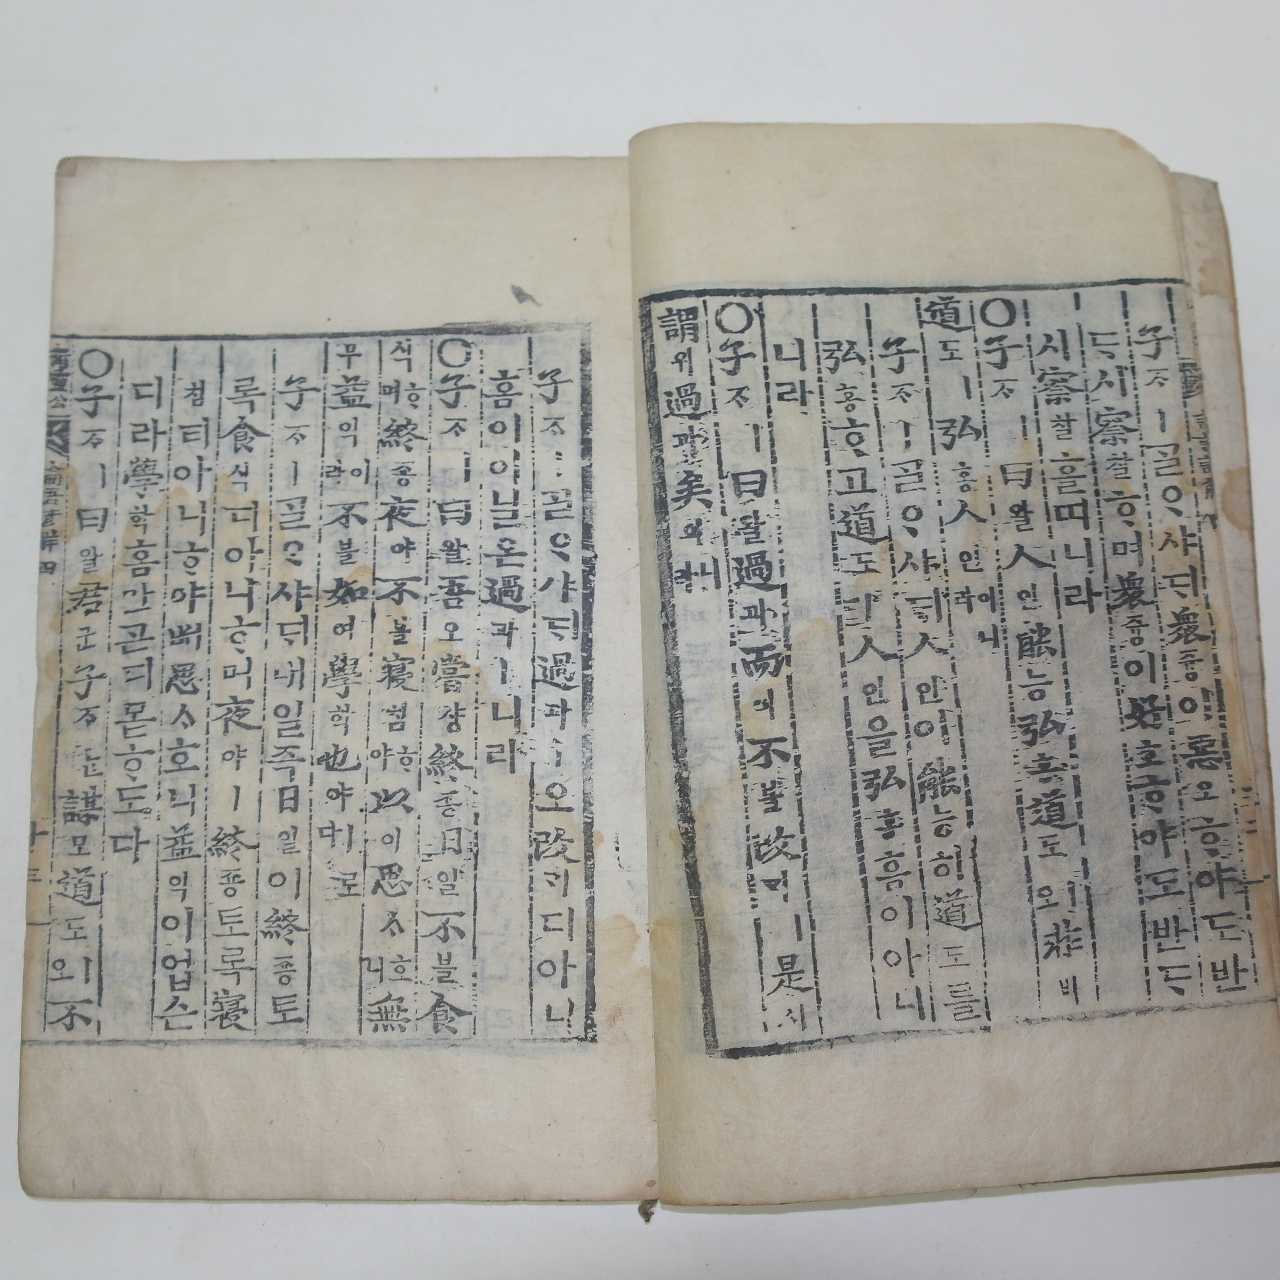 子ᄌᆞㅣᄀᆞᆯᄋᆞ샤ᄃᆡ衆즁이惡오ᄒᆞ야도반
ᄃᆞ시察찰ᄒᆞ며衆즁이好호ᄒᆞ야도반ᄃᆞ
시察찰ᄒᆞᆯᄯᅵ니라
○子ᄌᆞㅣ曰왈人인能능弘홍道도ㅣ오非비
道도ㅣ弘홍人인이니라
子ᄌᆞㅣᄀᆞᆯᄋᆞ샤ᄃᆡ人인이能능히道도를
弘홍ᄒᆞ고道도ㅣ人인을弘홍홈이아니
니라
○子ᄌᆞㅣ曰왈過과而의不블改ᄀᆡㅣ是시
謂위過과矣의니라
子ᄌᆞㅣᄀᆞᆯᄋᆞ샤ᄃᆡ過과ㅣ오改ᄀᆡ디아니
홈이이닐온過과ㅣ니라
○子ᄌᆞㅣ曰왈吾오嘗샹終죵日일不블食
식ᄒᆞ며終죵夜야不블寢침ᄒᆞ야以이思ᄉᆞ호니無
무益익이라不블如여學ᄒᆞᆨ也야ㅣ로다
子ᄌᆞㅣᄀᆞᆯᄋᆞ샤ᄃᆡ내일즉日일이終죵토
록食식디아니ᄒᆞ며夜야ㅣ終죵토록寢
침티아니ᄒᆞ야ᄡᅥ思ᄉᆞ호니益익이업슨
디라學ᄒᆞᆨ홈만ᄀᆞᆮ디몯ᄒᆞ도다
○子ᄌᆞㅣ曰왈君군子ᄌᆞᄂᆞᆫ謀모道도ㅣ오不
論語諺解四